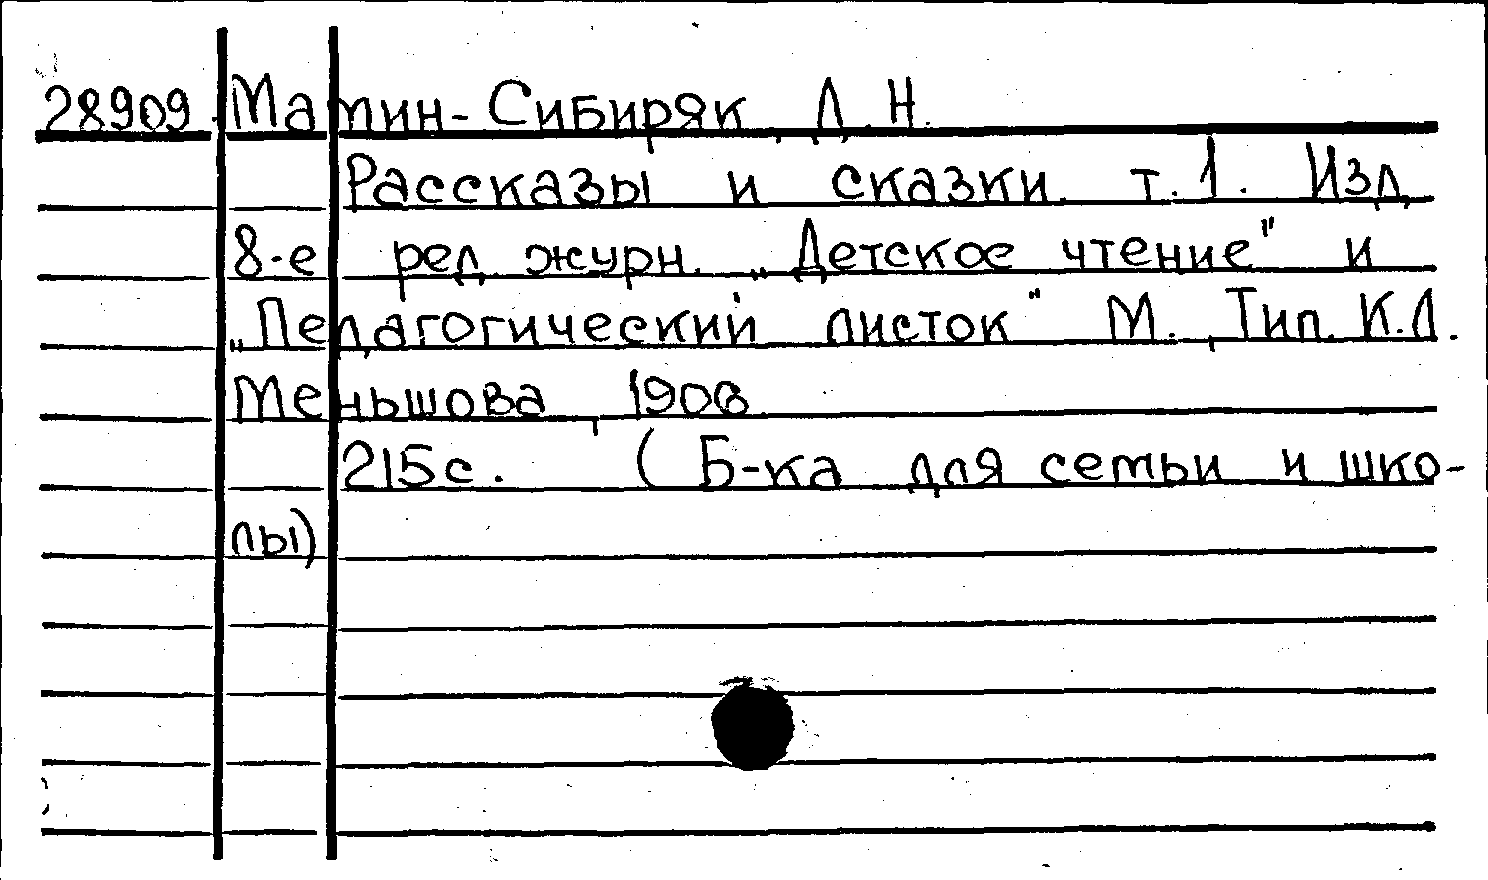 28909 Мамин-Сибиряк, Д.Н.
Рассказы и сказки. т.1. Изд.
8-е ред. журн. „Детское чтение" и
„Педагогический листок" М., Тип. К.Л.
Меньшова, 1908
215с. (Б-ка для семьи и шко-
лы)